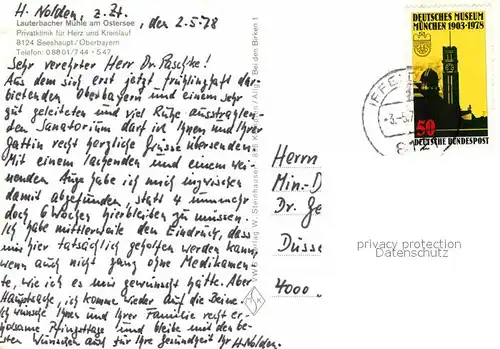 H. Nolden, z. Zt.
, den 2.5.78
Lauterbacher Mühle am Ostersee
Privatklinik für Herz und Kreislauf
8124 Seeshaupt/Oberbayern
Telefon: 08801/744 + 547
Sehr verehrter Herr Dr. Paschke!
Aus dem sich erst jetzt frühlinghaft dar-
bietenden Oberbayern und einem sehr
gut geleiteten und viel Ruhe ausstrahlen-
den Sanatorium darf ich Ihnen und Ihrer
Gattin recht herzliche Grüsse übersenden.
Mit einem lachenden und einem wei-
nenden Auge habe ich mich inzwischen
damit abgefunden, statt 4 nunmehr
doch 6 Wochen hierbleiben zu müssen.
Ich habe mittlerweile den Eindruck, dass
mir hier tatsächlich geholfen werden kann,
wenn auch nicht ganz ohne Medikamen-
te, wie ich es mir gewünscht hätte. Aber
Hauptsache, ich komme wieder auf die Beine.
Ich wünsche Ihnen und Ihrer Familie recht er-
holsame Pfingsttage und bleibe mit den be-
sten Wünschen auch für Ihre Gesundheit Ihr H. Nolden.
Verlag W. Steinhauser
Bei den Birken 1
DEUTSCHES MUSEUM
MÜNCHEN 1903-1978
50
DEUTSCHE BUNDESPOST
IFFE
-3.-5.7
812
Herrn
Min.-D
Dr. Ge
Düsse
4000
privacy protection
Datenschutz